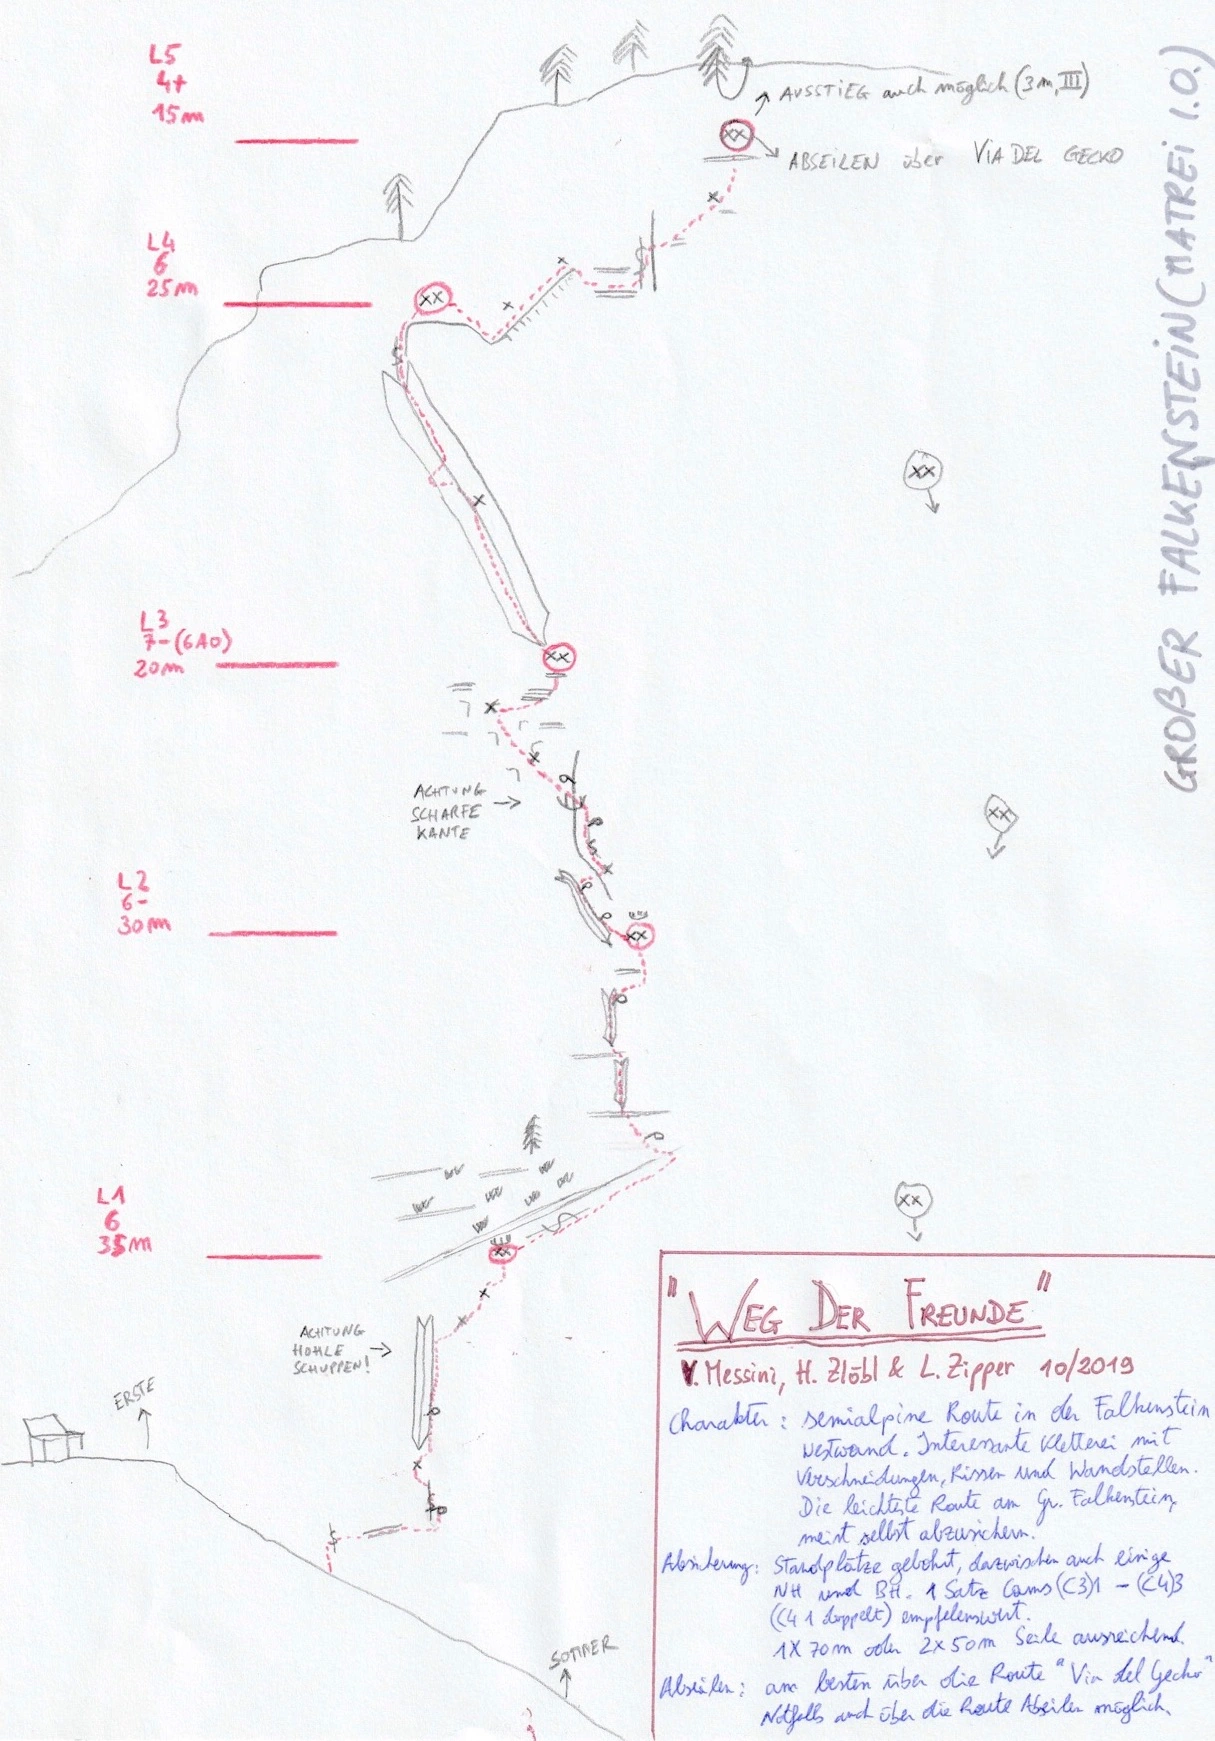 L5
4+
15m
AUSSTIEG auch möglich (3m, III)
XX
ABSEILEN über VIA DEL GECKO
GROßER FALKENSTEIN (MATREI I.O.)
L4
6
25m
XX
XX
L3
7-(6A0)
20m
XX
ACHTUNG
SCHARFE
KANTE
XX
L2
6-
30m
XX
L1
6
35m
XX
XX
ACHTUNG
HOHLE
SCHUPPEN!
ERSTE
SOMMER
"WEG DER FREUNDE"
V. Messini, H. Zlöbl & L. Zipper 10/2019
Charakter: semialpine Route in der Falkenstein
Westwand. Interessante Kletterei mit
Verschneidungen, Rissen und Wandstellen.
Die leichteste Route am Gr. Falkenstein,
meist selbst abzusichern.
Absicherung: Standplätze gebohrt, dazwischen auch einige
NH und BH. 1 Satz Cams (C3)1 - (C4)3
(C4 1 doppelt) empfelenswert.
1X 70m oder 2x50m Seile ausreichend.
Abseilen: am besten über die Route "Via del Gecko"
Notfalls auch über die Route Abseilen möglich.